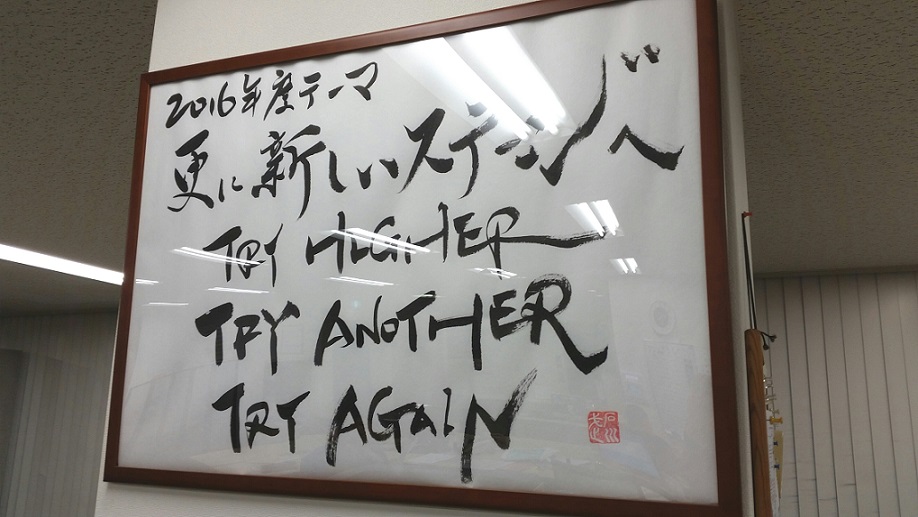 2016年度テーマ
更に新しいステージへ
TRY HIGHER
TRY ANOTHER
TRY AGAIN